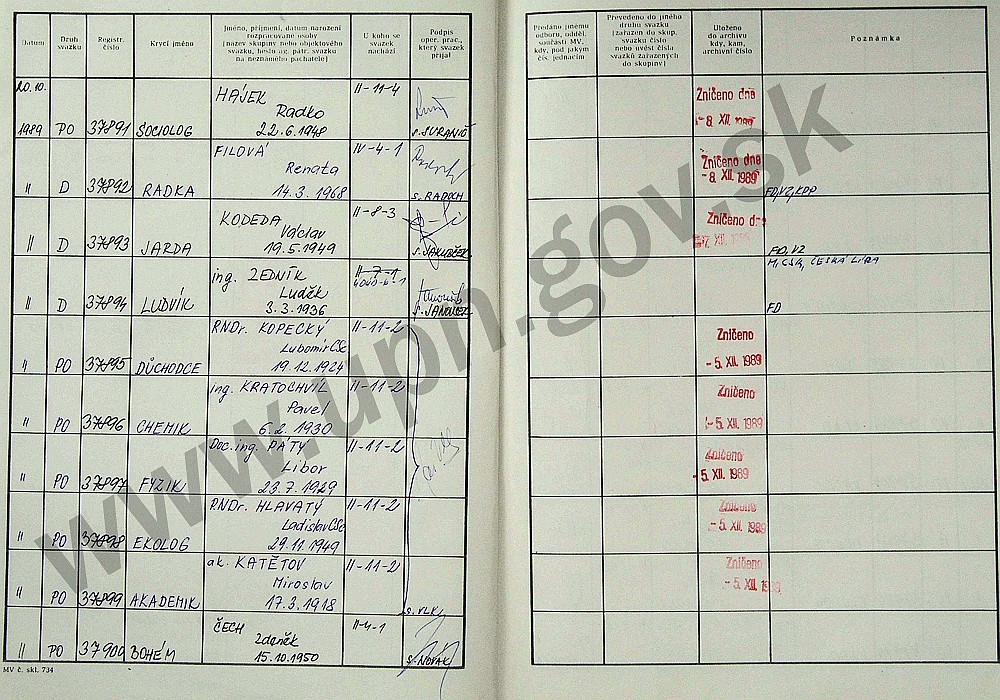 Datum
Druh svazku
Registr. číslo
Krycí jméno
Jméno, příjmení, datum narození
rozpracované osoby
(název skupiny nebo objektového
svazku, heslo ag. pátr. svazku
na neznámého pachatele)
U koho se
svazek
nachází
Podpis
oper. prac.,
který svazek
přijal
Předáno jinému
odboru, odděl.
součásti MV,
kdy, pod jakým
čís. jednacím
Převedeno do jiného
druhu svazku
(zařazen do skup.
svazku číslo
nebo uvést čísla
svazků zařazených
do skupiny)
Uloženo
do archivu
kdy, kam,
archivní číslo
Poznámka
20.10.
1989 PO 37891 SOCIOLOG
HÁJEK
Radko
22.6.1948
II-11-4
Zničeno dne
-8. XII. 1989
" D 37892 RADKA
FILOVÁ
Renata
14.3.1968
IV-4-1
s. RADOCH
Zničeno dne
-8. XII. 1989
FD, VZ, KDP
" D 37893 JARDA
KODEDA
Václav
19.5.1949
II-8-3
s. JAKUBŽEK
Zničeno dne
FD, VZ
" D 37894 LUDVÍK
ing. ZEDNÍK
Luděk
3.3.1936
II-7-1
M, CSK, ČESKÁ LÍPA
FD
" PO 37895 DŮCHODCE
RNDr. KOPECKÝ
Lubomír CSc
19.12.1924
II-11-2
Zničeno
-5. XII. 1989
" PO 37896 CHEMIK
ing. KRATOCHVIL
Pavel
6.2.1930
II-11-2
Zničeno
-5. XII. 1989
" PO 37897 FYZIK
Doc.ing. PÁTÝ
Libor
23.7.1929
II-11-2
Zničeno
-5. XII. 1989
" PO 37898 EKOLOG
RNDr. HLAVATÝ
Ladislav CSc
29.11.1949
II-11-2
Zničeno
-5. XII. 1989
" PO 37899 AKADEMIK
ak. KATĚTOV
Miroslav
17.3.1918
II-11-2
s. VLK
Zničeno
-5. XII. 1989
" PO 37900 BOHÉM
ČECH
Zdeněk
15.10.1950
II-4-1
s. NOVÁK
MV č. skl. 734
www.upn.gov.sk